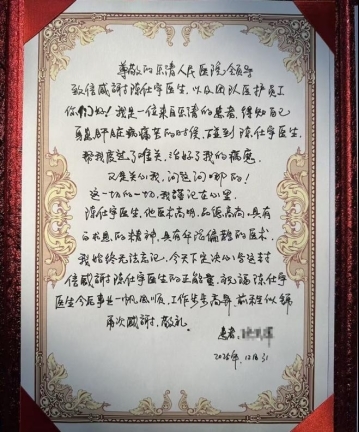 尊敬的乐清人民医院领导
致信感謝陈仕宇医生，以及团队医护员工
你们好！我是一位来自乐清的患者，得知自己
身患肝脏病痛苦的时候，碰到陈仕宇医生，
帮我度过了难关，治好了我的病魔
又是关心我，问这问那的！
这一切的一切，我謹记在心里。
陈仕宇医生，他医术高明，品德高尚，具有
的精神，具有的医术。
我始终无法忘记，今天下定决心写这封
信感謝陈仕宇医生的正能量，祝福陈仕宇
医生今后事业一帆风顺，工作步步高昇，前程似锦
再次感謝，敬礼。
患者：
2025年，12月31